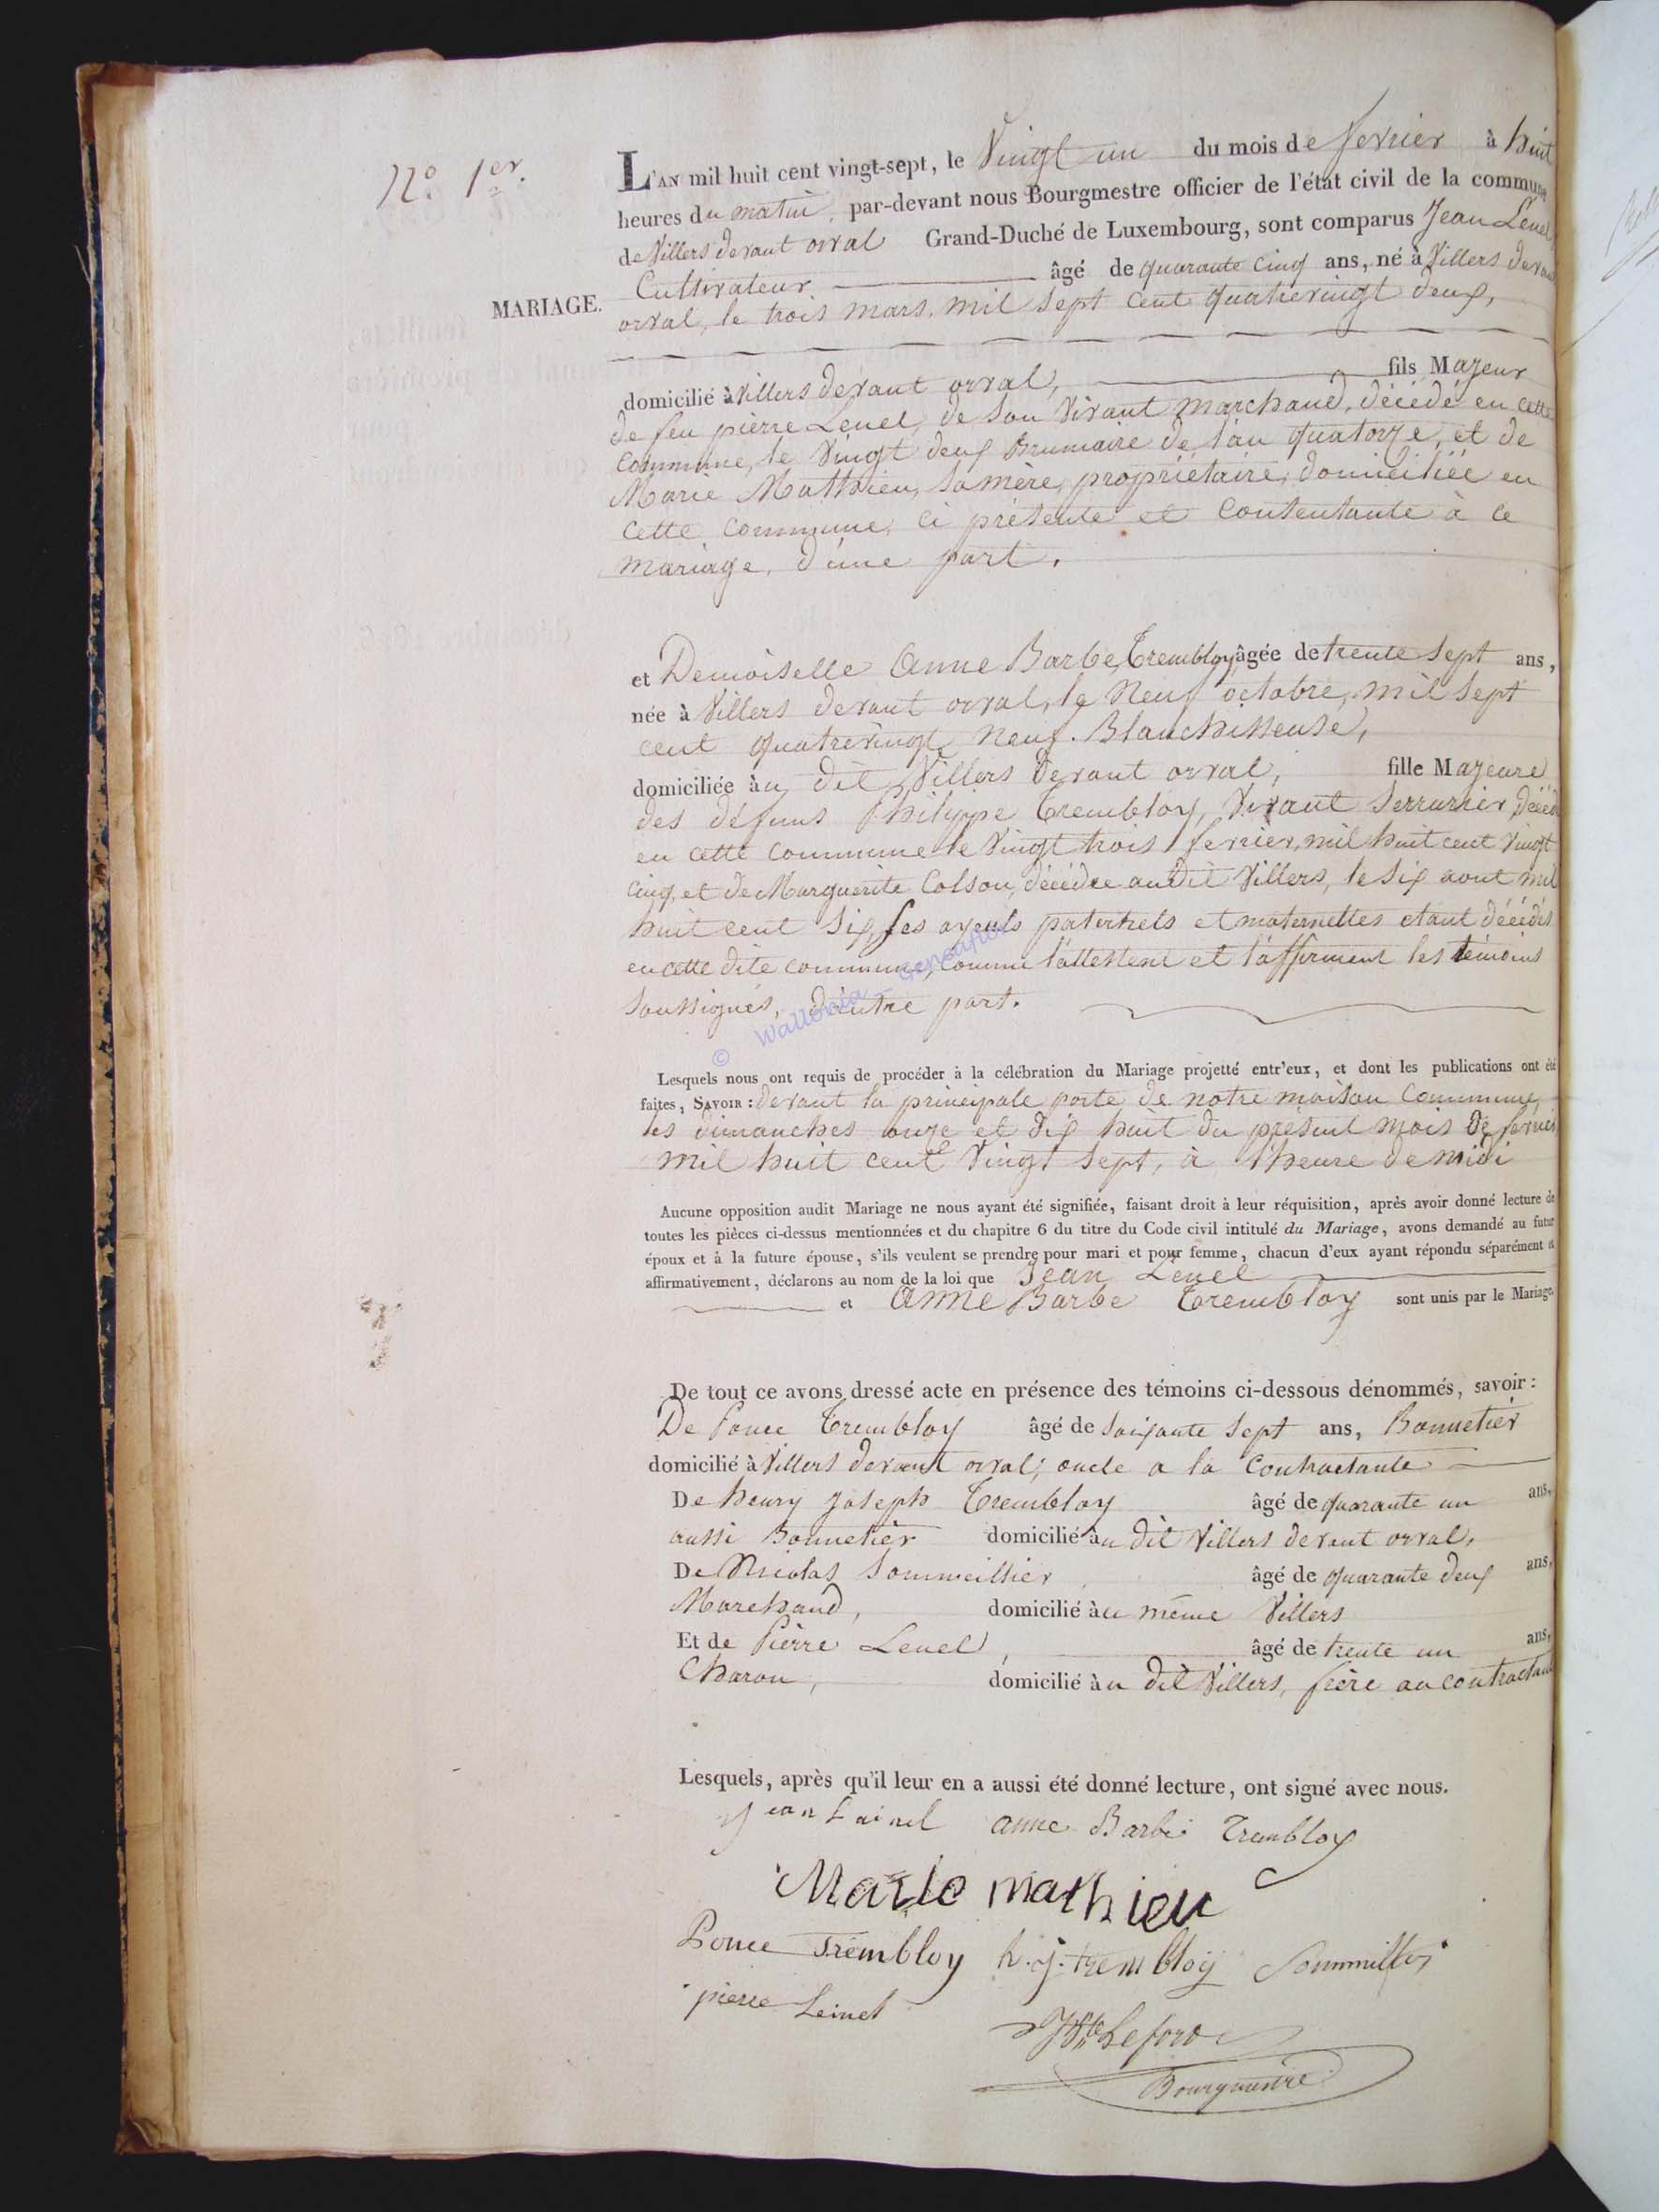 N.° 1.er
MARIAGE.
L'AN mil huit cent vingt-sept, le Vingt un du mois de fevrier à huit
heures du matin, par-devant nous Bourgmestre officier de l'état civil de la commune
de Villers devant orval Grand-Duché de Luxembourg, sont comparus Jean Lenel
Cultivateur âgé de quarante cinq ans, né à Villers devant
orval, le trois mars, mil sept cent quatrevingt deux,
domicilié à Villers devant orval, fils Majeur
de feu pierre Lenel, de son vivant marchand, décédé en cette
commune, le Vingt deux Brumaire de l'an quatorze, et de
Marie Matthieu, sa mère, propriétaire, domiciliée en
cette commune, ci présente et consentante à ce
mariage, d'une part.
et Demoiselle Anne Barbe Trembloy âgée de trente sept ans,
née à Villers devant orval, le Neuf octobre, mil sept
cent quatrevingt neuf. Blanchisseuse,
domiciliée àu dit Villers devant orval, fille Majeure
des défuns Philippe Trembloy, vivant Serrurier, décédé
en cette commune le Vingt trois fevrier, mil huit cent Vingt
cinq, et de Marguerite Colson, décédée audit Villers, le six aout mil
huit cent six, ses ayeuls paternels et maternelles etant décédés
en cette dite commune, comme l'attestent et l'affirment les témoins
soussignés, d'autre part.
© Wallonia - Geneafiles
Lesquels nous ont requis de procéder à la célébration du Mariage projetté entr'eux, et dont les publications ont été
faites, SAVOIR : devant la principale porte de notre maison commune,
les dimanches onze et dix huit du présent mois de fevrier
mil huit cent Vingt sept, à l'heure de midi
Aucune opposition audit Mariage ne nous ayant été signifiée, faisant droit à leur réquisition, après avoir donné lecture de
toutes les pièces ci-dessus mentionnées et du chapitre 6 du titre du Code civil intitulé du Mariage, avons demandé au futur
époux et à la future épouse, s'ils veulent se prendre pour mari et pour femme, chacun d'eux ayant répondu séparément et
affirmativement, déclarons au nom de la loi que Jean Lenel
et Anne Barbe Trembloy sont unis par le Mariage.
De tout ce avons dressé acte en présence des témoins ci-dessous dénommés, savoir :
De Ponce Trembloy âgé de soixante sept ans, Bonnetier
domicilié à Villers devant orval, oncle a la contractante
De henry joseph Trembloy âgé de quarante un ans,
aussi Bonnetier domicilié àu dit Villers devant orval,
De Nicolas Sommeillier âgé de quarante deux ans,
Marchand, domicilié àu même Villers
Et de Pierre Lenel, âgé de trente un ans,
Charon, domicilié àu dit Villers, frère au contractant
Lesquels, après qu'il leur en a aussi été donné lecture, ont signé avec nous.
Jean Lainel anne Barbe Trembloy
Marie mathieu
Ponce Trembloy h. j. trembloy Sommillier
pierre Leinel
Leford
Bourguestre